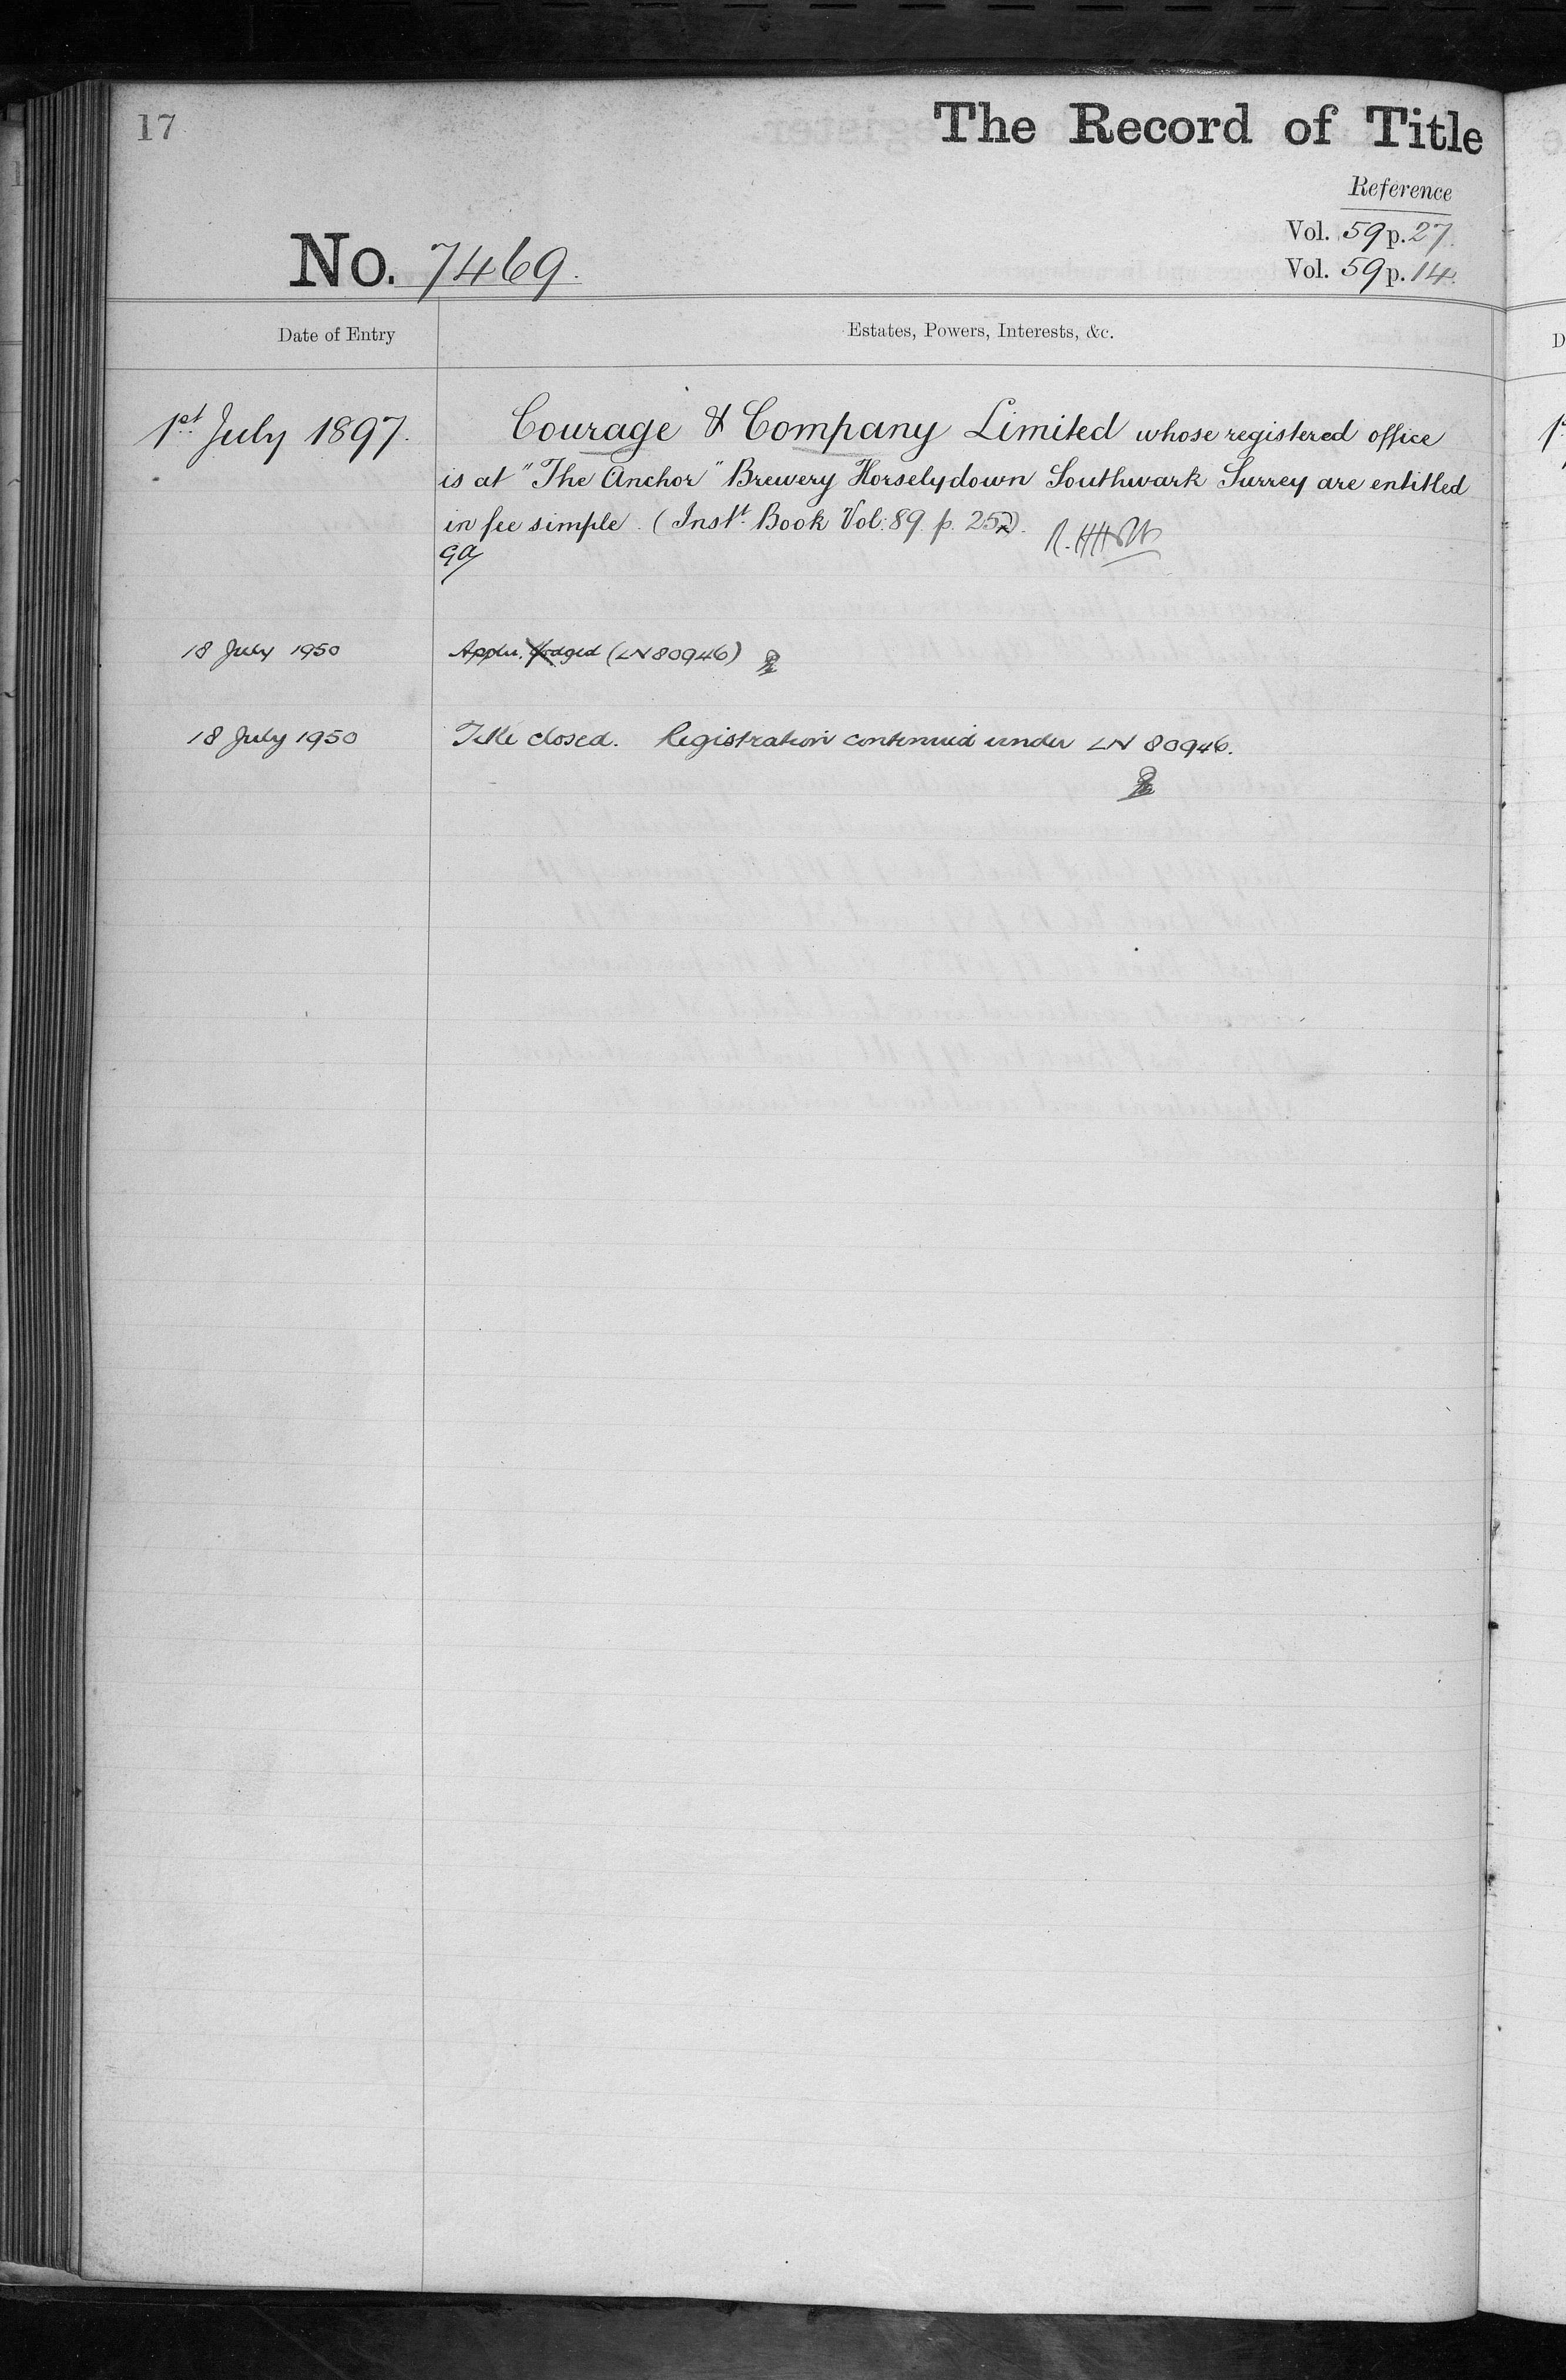 17
The Record of Title
Reference
Vol. 59 p. 27.
No. 7469.
Vol. 59 p. 14.
Date of Entry
Estates, Powers, Interests, &c.
1st July 1897.
Courage & Company Limited whose registered office
is at "The Anchor" Brewery Horselydown Southwark Surrey are entitled
in fee simple. (Instt. Book Vol: 89. p. 252).
GA
18 July 1950
Appln. lodged (LN 80946)
18 July 1950
Title closed. Registration continued under LN 80946.